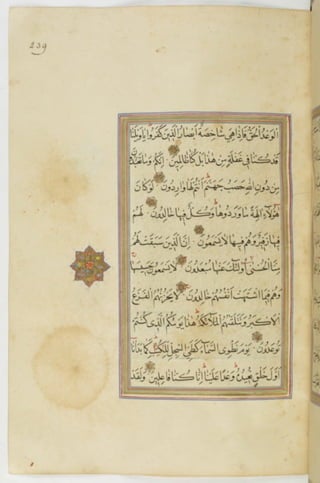 239
الْوَعْدُ الْحَقُّ فَاِذَا هِيَ شَاخِصَةٌ اَبْصَارُ الَّذِينَ كَفَرُوا يَا وَيْلَنَا
قَدْ كُنَّا فِي غَفْلَةٍ مِنْ هٰذَا بَلْ كُنَّا ظَالِمِينَ اِنَّكُمْ وَمَا تَعْبُدُونَ
مِنْ دُونِ اللّٰهِ حَصَبُ جَهَنَّمَ اَنْتُمْ لَهَا وَارِدُونَ لَوْ كَانَ
هٰؤُلَاءِ اٰلِهَةً مَا وَرَدُوهَا وَكُلٌّ فِيهَا خَالِدُونَ لَهُمْ
فِيهَا زَفِيرٌ وَهُمْ فِيهَا لَا يَسْمَعُونَ اِنَّ الَّذِينَ سَبَقَتْ لَهُمْ
مِنَّا الْحُسْنٰى اُولٰئِكَ عَنْهَا مُبْعَدُونَ لَا يَسْمَعُونَ حَسِيسَهَا
وَهُمْ فِيمَا اشْتَهَتْ اَنْفُسُهُمْ خَالِدُونَ لَا يَحْزُنُهُمُ الْفَزَعُ
الْاَكْبَرُ وَتَتَلَقّٰيهُمُ الْمَلٰئِكَةُ هٰذَا يَوْمُكُمُ الَّذِي كُنْتُمْ
تُوعَدُونَ يَوْمَ نَطْوِي السَّمَاءَ كَطَيِّ السِّجِلِّ لِلْكُتُبِ كَمَا بَدَاْنَا
اَوَّلَ خَلْقٍ نُعِيدُهُ وَعْدًا عَلَيْنَا اِنَّا كُنَّا فَاعِلِينَ وَلَقَدْ